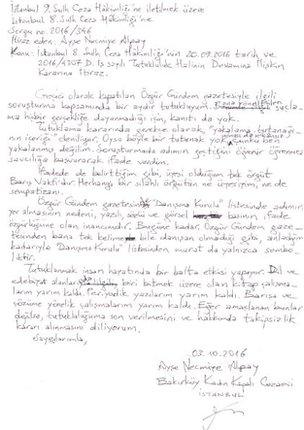 İstanbul 9. Sulh Ceza Hakimliği'ne iletilmek üzere
İstanbul 8. Sulh Ceza Hakimliği'ne
Sorgu no: 2016/346
İtiraz eden: Ayşe Necmiye Alpay
Konu: İstanbul 8. Sulh Ceza Hakimliği'nin 20.09.2016 tarih ve
2016/4707 D. İş sayılı Tutukluluk Halinin Devamına İlişkin
Kararına itiraz.
Geçici olarak kapatılan Özgür Gündem gazetesiyle ilgili
soruşturma kapsamında bir aydır tutukluyum. Bana yöneltilen suçla-
ma hiçbir gerçekliğe dayanmadığı için, kanıtı da yok.
Tutuklama kararında gerekçe olarak, "yakalama tutanağı-
nın içeriği" deniliyor. Oysa böyle bir tutanak yok, çünkü ben
yakalanmış değilim. Soruşturmada adımın geçtiğini öğrenir öğrenmez
savcılığa başvurarak ifade verdim.
İfadede de belirttiğim gibi, üyesi olduğum tek örgüt
Barış Vakfı'dır. Herhangi bir silahlı örgütün ne üyesiyim, ne de
sempatizanı.
Özgür Gündem gazetesinin "Danışma Kurulu" listesinde adımın
yer almasının nedeni, yazılı, sözlü ve görsel basının, ifade
özgürlüğüne olan inancımdır. Bugüne kadar, Özgür Gündem gaze-
tesinden bana tek bile danışan olmadığı gibi, anladığım
kadarıyla "Danışma Kurulu" listesinden murat da yalnızca sembo-
liktir.
Tutuklanmak insan hayatında bir balta etkisi yapıyor. Dil ve
edebiyat alanları biri bitmek üzere olan kitap çalışma-
larım yarım kaldı. Periyodik yazılarım yarım kaldı. Barışa ve
çözüme yönelik çalışmalarım yarım kaldı. Eğer amaçlanan bunlar
değilse, tutukluluğuma son verilmesini ve hakkımda takipsizlik
kararı alınmasını diliyorum.
Saygılarımla,
03.10.2016
Ayşe Necmiye Alpay
Bakırköy Kadın Kapalı Cezaevi
İSTANBUL